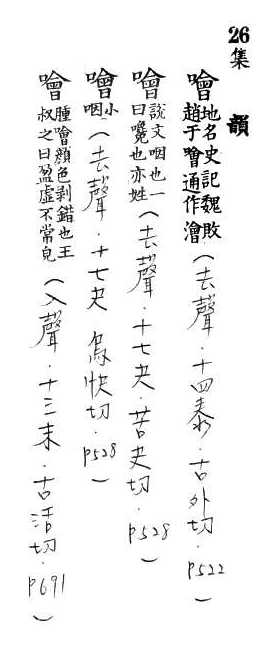 26集 韻
噲地名史記魏敗趙于噲通作澮(去聲．十四泰．古外切．P522)
噲說文咽也一曰嚵也亦姓(去聲．十七夬．苦夬切．P528)
噲小咽(去聲．十七夬 烏快切．P528)
噲腫噲顏色剥錯也王叔之曰盈虛不常皃(入聲．十三末．古活切．P691)